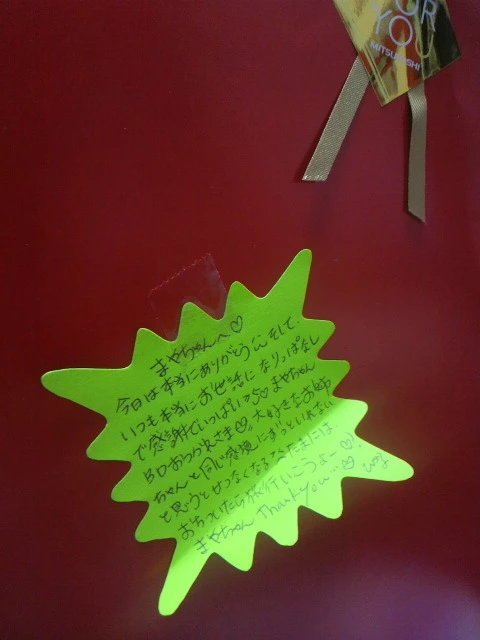 FOR
YOU
MITSUKOSHI
まやちゃんへ♡
今日は本当にありがとう そして、
いつも本当にお世話になりっぱなし
で感謝でいっぱいです♡まやちゃん
BDおつかれさま♡。大好きなお姉
ちゃんと同じ感覚にずっといれない
と思うとせつなくなる たまには、
おちついたら旅行いこうよー♡!
まやちゃん Thank you...♡